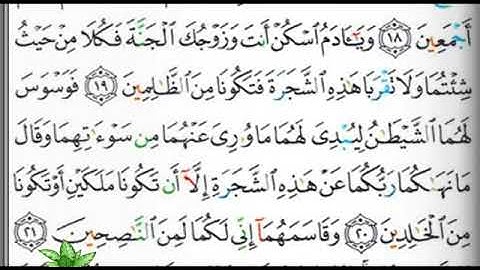 أَجْمَعِينَ ﴿١٨﴾ وَيَـٰٓـَٔادَمُ ٱسْكُنْ أَنتَ وَزَوْجُكَ ٱلْجَنَّةَ فَكُلَا مِنْ حَيْثُ
شِئْتُمَا وَلَا تَقْرَبَا هَـٰذِهِ ٱلشَّجَرَةَ فَتَكُونَا مِنَ ٱلظَّـٰلِمِينَ ﴿١٩﴾ فَوَسْوَسَ
لَهُمَا ٱلشَّيْطَـٰنُ لِيُبْدِىَ لَهُمَا مَا وُۥرِىَ عَنْهُمَا مِن سَوْءَٰتِهِمَا وَقَالَ
مَا نَهَىٰكُمَا رَبُّكُمَا عَنْ هَـٰذِهِ ٱلشَّجَرَةِ إِلَّآ أَن تَكُونَا مَلَكَيْنِ أَوْ تَكُونَا
مِنَ ٱلْخَـٰلِدِينَ ﴿٢٠﴾ وَقَاسَمَهُمَآ إِنِّى لَكُمَا لَمِنَ ٱلنَّـٰصِحِينَ ﴿٢١﴾